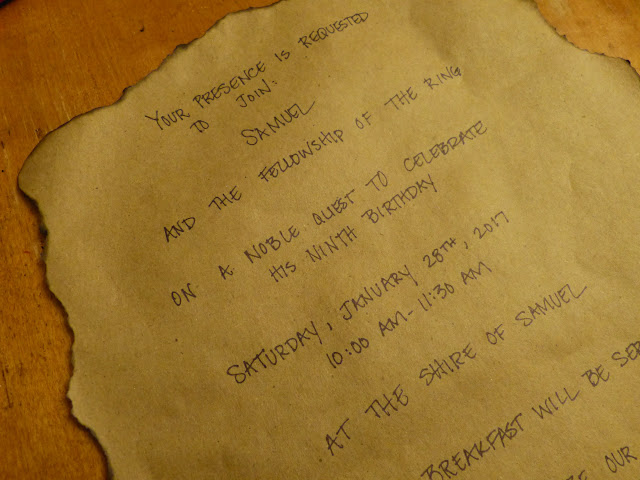 YOUR PRESENCE IS REQUESTED
TO JOIN:
SAMUEL
AND THE FELLOWSHIP OF THE RING
ON A NOBLE QUEST TO CELEBRATE
HIS NINTH BIRTHDAY
SATURDAY, JANUARY 28TH, 2017
10:00 AM - 11:30 AM
AT THE SHIRE OF SAMUEL
BREAKFAST WILL BE SER
OUR